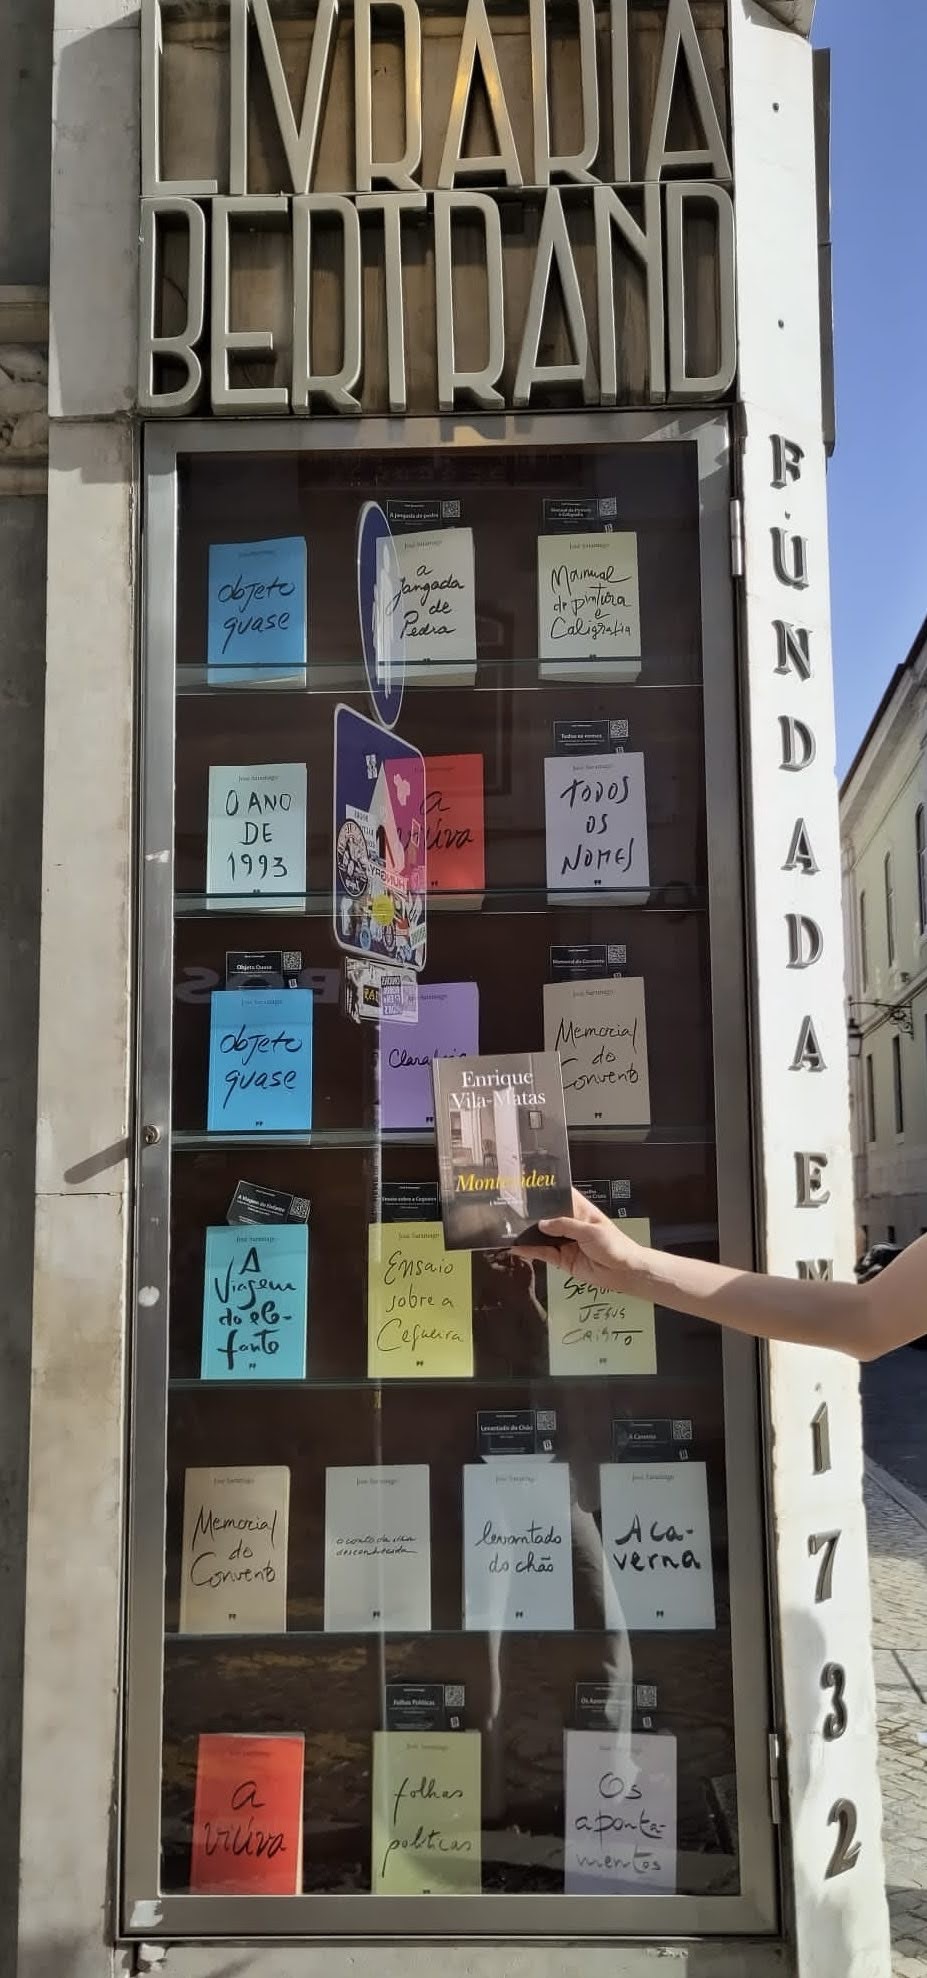 LIVRARIA
BERTRAND
FUNDADA EM 1732
A jangada de pedra
José Saramago
objeto
quase
José Saramago
a
jangada
de
Pedra
José Saramago
Manual
de pintura
e
Caligrafia
Todos os nomes
José Saramago
O ANO
DE
1993
a
viúva
José Saramago
TODOS
OS
NOMES
Objeto Quase
Memorial do Convento
José Saramago
objeto
quase
José Saramago
Memorial
do
Convento
Enrique
Vila-Matas
Montevideu
A Viagem do Elefante
Ensaio sobre a Cegueira
José Saramago
A
Viagem
do ele-
fante
José Saramago
Ensaio
sobre a
Cegueira
JESUS
CRISTO
Levantado do Chão
A Caverna
José Saramago
Memorial
do
Convento
José Saramago
o conto da ilha
desconhecida
José Saramago
levantado
do chão
José Saramago
A Ca-
verna
Folhas Políticas
José Saramago
a
viúva
José Saramago
folhas
políticas
José Saramago
Os
aponta-
mentos